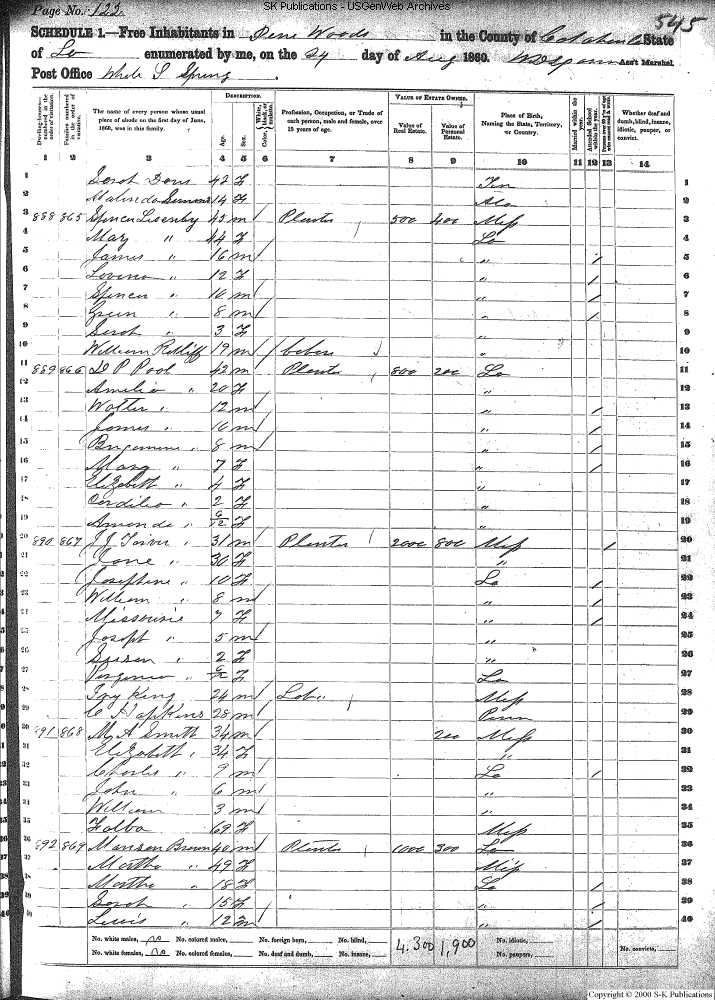 SK Publications - USGenWeb Archives
Page No. 122
545
SCHEDULE 1.—Free Inhabitants in Pine Woods in the County of Catahoula State
of La enumerated by me, on the 24 day of Aug 1860. Ass't Marshal.
Post Office White S Spring.
Dwelling-houses—numbered in the order of visitation.
Families numbered in the order of visitation.
The name of every person whose usual place of abode on the first day of June, 1860, was in this family.
DESCRIPTION.
Age.
Sex.
Color, White, black, or mulatto.
Profession, Occupation, or Trade of each person, male and female, over 15 years of age.
VALUE OF ESTATE OWNED.
Value of Real Estate.
Value of Personal Estate.
Place of Birth, Naming the State, Territory, or Country.
Married within the year.
Attended School within the year.
Persons over 20 y'rs of age who cannot read & write.
Whether deaf and dumb, blind, insane, idiotic, pauper, or convict.
1 2 3 4 5 6 7 8 9 10 11 12 13 14
1 Sarah 42 F Ten 1
2 Malinda 14 F Ala 2
3 888 865 Spencer Lisenby 45 m Planter / 500 400 Miss 3
4 Mary " 44 F La 4
5 James " 16 m " / 5
6 12 F " / 6
7 Spencer " 10 m " / 7
8 Green " 8 m " / 8
9 Sarah " 3 F " 9
10 William Ratliff 19 m / " 10
11 889 866 P Pool 42 m Planter / 800 200 La 11
12 Amelia " 20 F " 12
13 Walter " 12 m " / 13
14 James " 10 m " / 14
15 8 m " / 15
16 Mary " 7 F " / 16
17 Elizabeth " 4 F " 17
18 Cordilia " 2 F " 18
19 Amanda " 6/12 F " 19
20 890 867 J J " 31 m Planter / 2000 800 Miss / 20
21 Jane " 30 F " 21
22 Josephine " 10 F La / 22
23 William " 8 m " / 23
24 Missourie 7 F " / 24
25 Joseph " 5 m " 25
26 Susan " 2 F " 26
27 Virginia " 6/12 F La 27
28 King 24 m Lab " / Miss 28
29 C Hapkins 28 m Penn 29
30 891 868 M A Smith 34 m 200 Miss 30
31 Elizabeth " 34 F " 31
32 Charles " 9 m La / 32
33 John " 6 m " 33
34 William 3 m " 34
35 69 F Miss 35
36 892 869 Manson Brown 40 m Planter / 1000 300 La 36
37 Martha " 49 F Miss 37
38 Martha " 18 F La / 38
39 Sarah " 15 F " / 39
40 Lewis " 12 m " / 40
No. white males, No. colored males, No. foreign born, No. blind, 4.300 1,900 No. idiotic,
No. white females, No. colored females, No. deaf and dumb, No. insane, No. paupers, No. convicts,
Copyright © 2000 S-K Publications